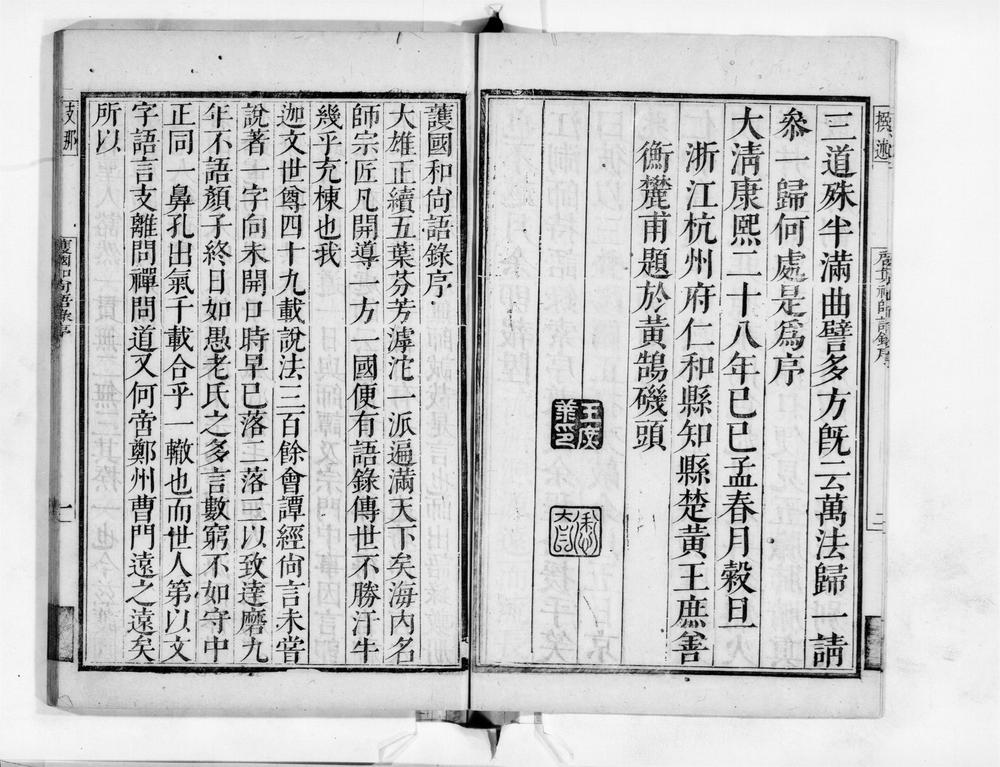 三道殊半滿曲譬多方旣云萬法歸一請
叅一歸何處是爲序
大淸康熙二十八年己巳孟春月穀旦
浙江杭州府仁和縣知縣楚黃王庶善
衡麓甫題於黃鵠磯頭
撰述
二
護國和尙語錄序
大雄正續五葉芬芳滹沱一派遍滿天下矣海內名
師宗匠凡開導一方一國便有語錄傳世不勝汗牛
幾乎充棟也我
迦文世尊四十九載說法三百餘會譚經尙言未嘗
說著一字向未開口時早已落二落三以致達磨九
年不語顏子終日如愚老氏之多言數窮不如守中
正同一鼻孔出氣千載合乎一轍也而世人第以文
字語言支離問禪問道又何啻鄭州曹門遠之遠矣
所以
支那
護國和尙語錄序
一